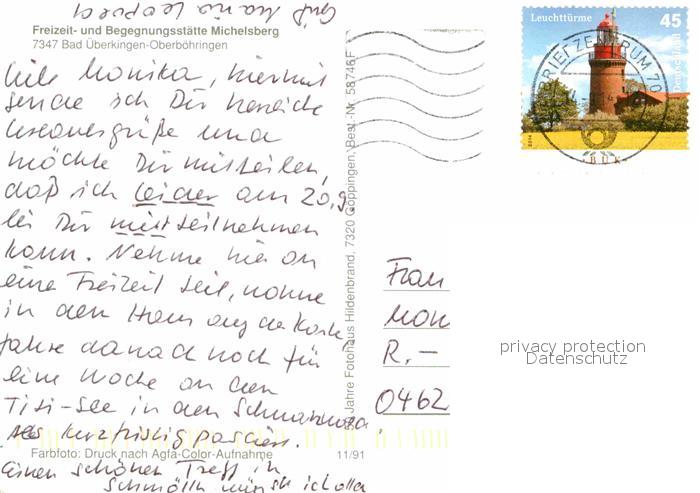 Gruß Maria Leopold
Freizeit- und Begegnungsstätte Michelsberg
7347 Bad Überkingen-Oberböhringen
Liebe Monika, hiermit
sende ich Dir herzliche
grüße und
möchte Dir mitteilen,
daß ich leider am 20.9.
bei Dir nicht teilnehmen
kann. Nehme hier an
eine Freizeit teil, wohne
in dem Haus auf der Karte
fahre danach noch für
eine Woche an den
Titi-See in den Schwarzwa
kurzfristig
Farbfoto: Druck nach Agfa-Color-Aufnahme
11/91
einen schönen Treff in
Schmölln wünsche ich allen
Jahre Fotohaus Hildenbrand, 7320 Göppingen, Best.-Nr. 58746F
Leuchttürme
45
Deutschland
BRIEFZENTRUM 70
BUK
Frau
Mon
R.-
0462
privacy protection
Datenschutz